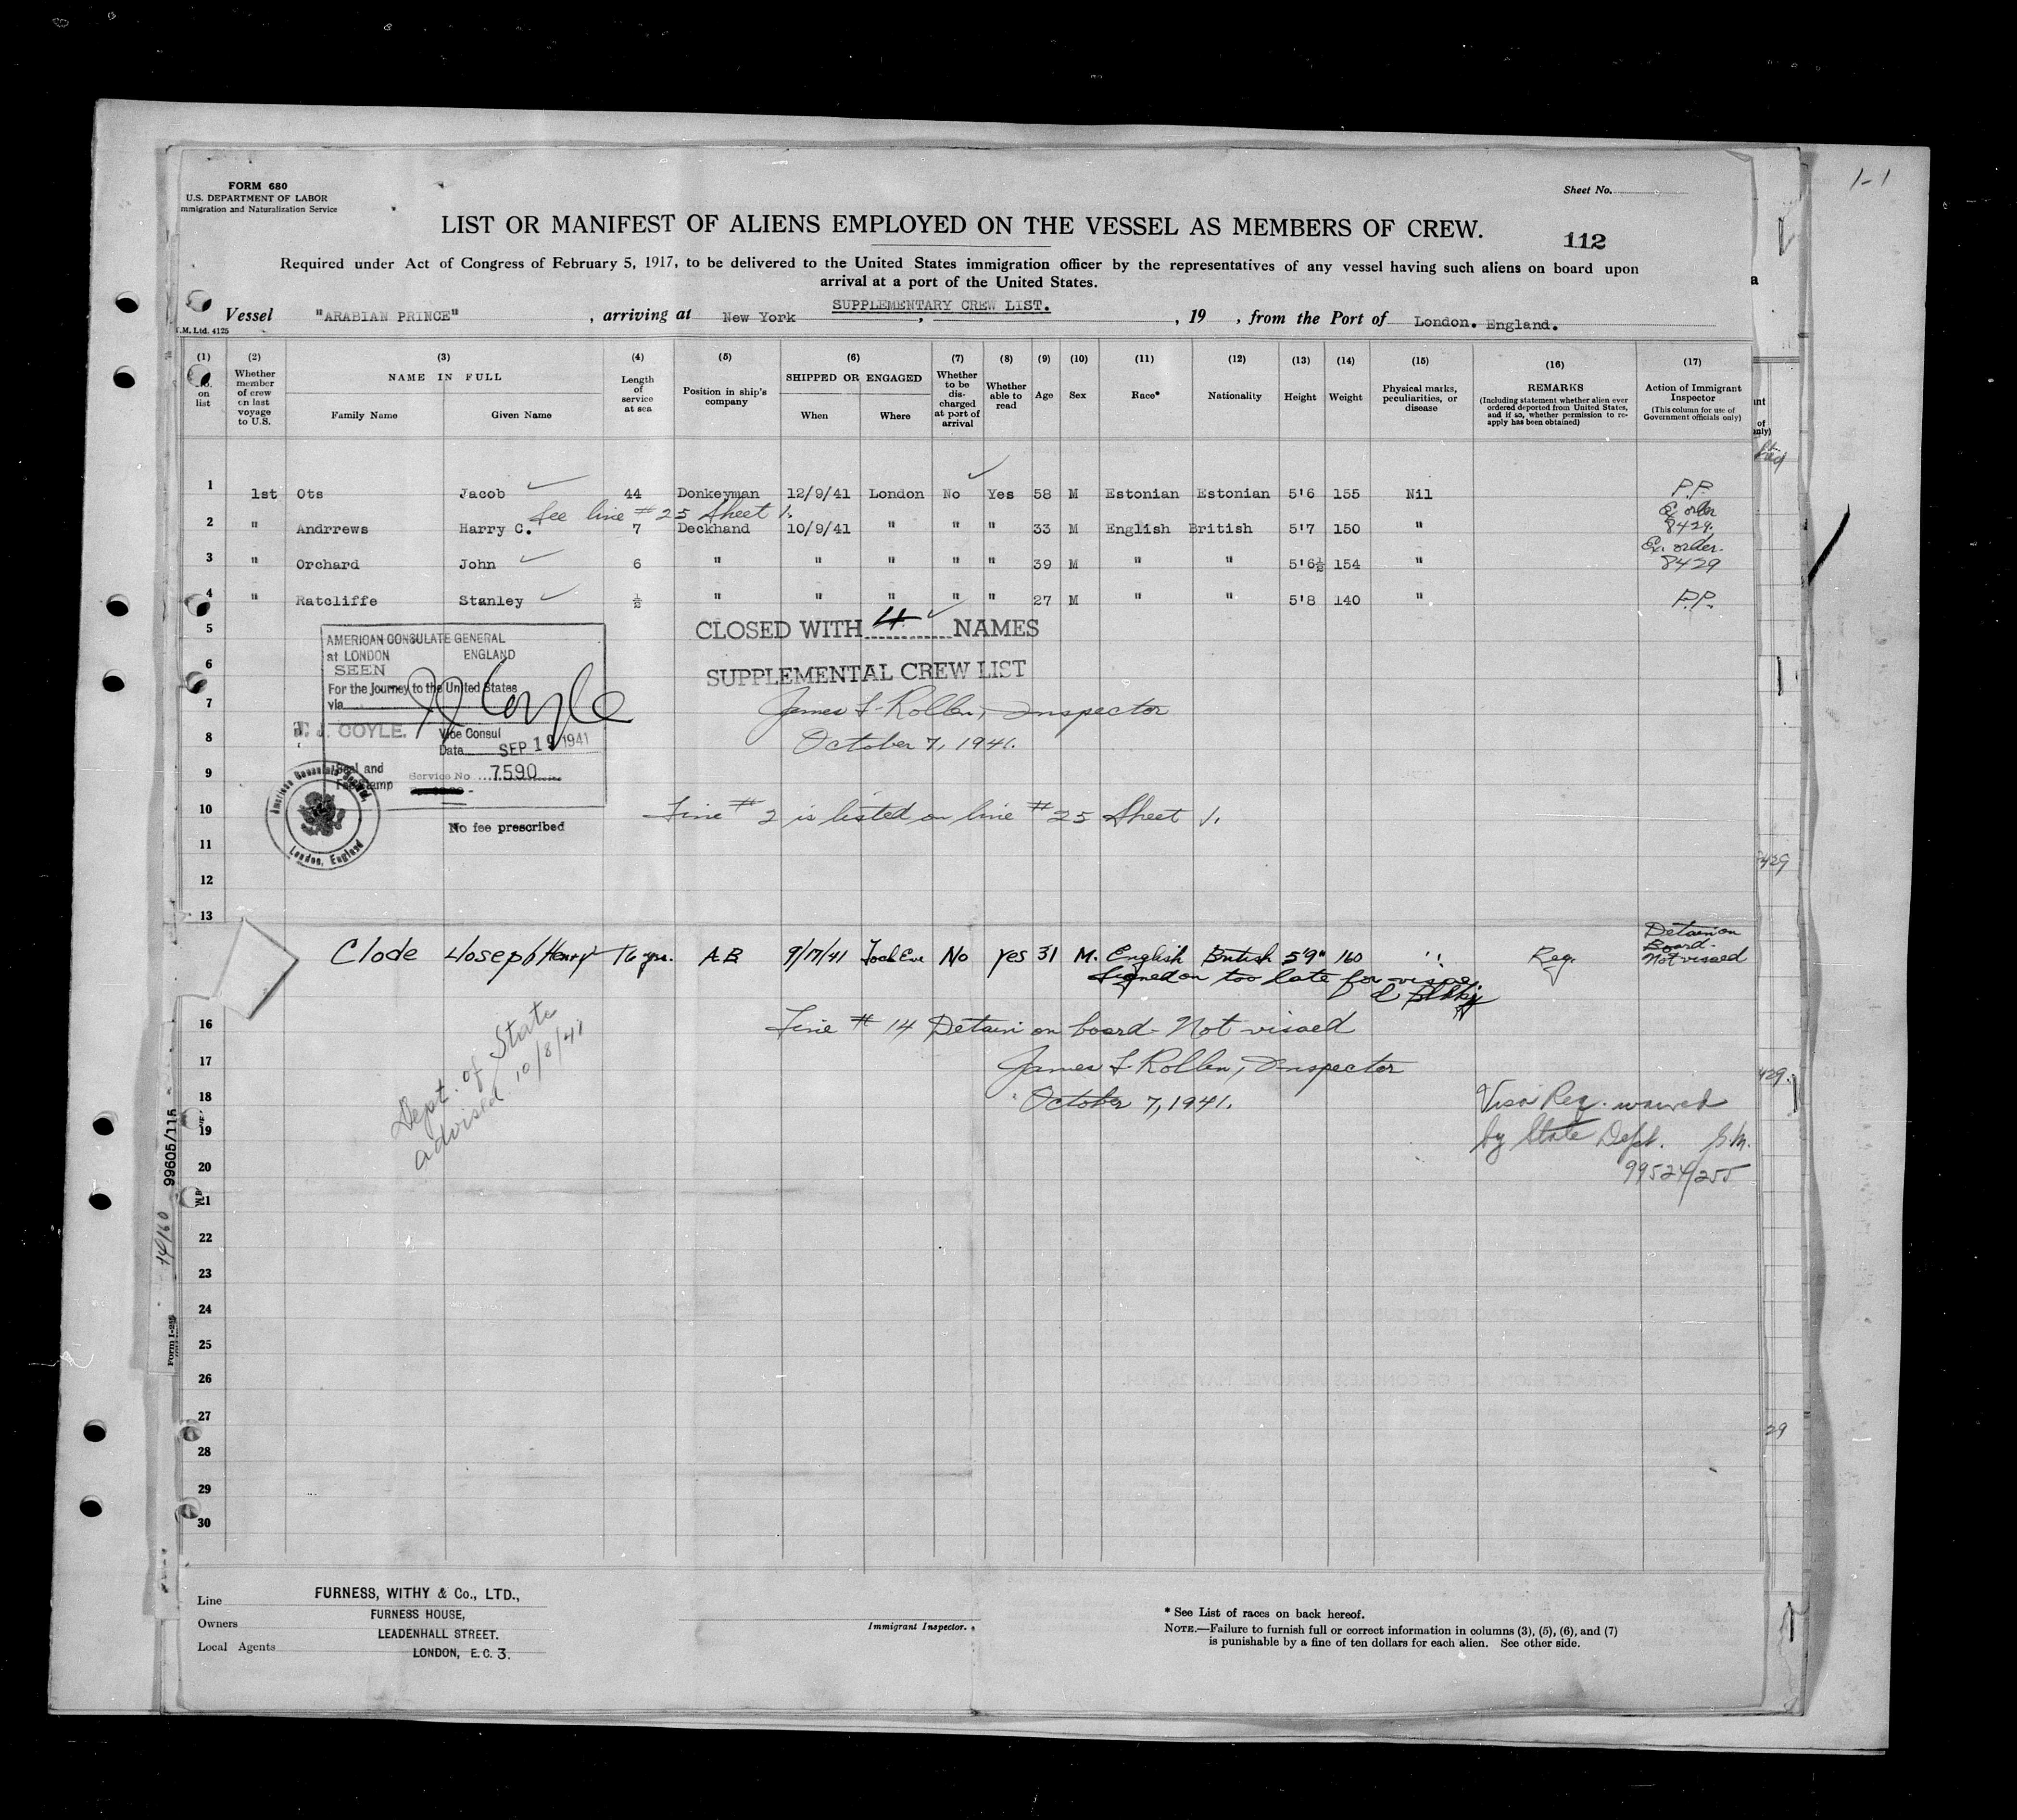 1-1
FORM 680
U.S. DEPARTMENT OF LABOR
mmigration and Naturalization Service
Sheet No.
LIST OR MANIFEST OF ALIENS EMPLOYED ON THE VESSEL AS MEMBERS OF CREW.
112
Required under Act of Congress of February 5, 1917, to be delivered to the United States immigration officer by the representatives of any vessel having such aliens on board upon
arrival at a port of the United States.
SUPPLEMENTARY CREW LIST.
Vessel "ARABIAN PRINCE" , arriving at New York , , 19 , from the Port of London. England.
T.M. Ltd. 4125
(1) (2) (3) (4) (5) (6) (7) (8) (9) (10) (11) (12) (13) (14) (15) (16) (17)
No. on list
Whether member of crew on last voyage to U.S.
NAME IN FULL
Family Name Given Name
Length of service at sea
Position in ship's company
SHIPPED OR ENGAGED
When Where
Whether to be discharged at port of arrival
Whether able to read
Age Sex Race* Nationality Height Weight
Physical marks, peculiarities, or disease
REMARKS
(Including statement whether alien ever ordered deported from United States, and if so, whether permission to reapply has been obtained)
Action of Immigrant Inspector
(This column for use of Government officials only)
1 1st Ots Jacob 44 Donkeyman 12/9/41 London No Yes 58 M Estonian Estonian 5'6 155 Nil P.P.
See line #25 Sheet 1.
2 " Andrrews Harry C. 7 Deckhand 10/9/41 " " " 33 M English British 5'7 150 " Ex order 8429.
3 " Orchard John 6 " " " " " 39 M " " 5'6½ 154 " Ex. order. 8429
4 " Ratcliffe Stanley ½ " " " " " 27 M " " 5'8 140 " P.P.
5
CLOSED WITH 4 NAMES
6
SUPPLEMENTAL CREW LIST
7
James F. Rollen, Inspector
8
October 7, 1941.
AMERICAN CONSULATE GENERAL
at LONDON ENGLAND
SEEN
For the journey to the United States
via
T. J. COYLE.
Vice Consul
Date SEP 19 1941
Seal and
Fee Stamp
Service No 7590
No fee prescribed
American Consulate General
London, England
9
10
Line #2 is listed on line #25 Sheet 1.
11
12
13
Clode Joseph Henry 16 yrs. A.B 9/17/41 No yes 31 M. English British 5'9" 160 " Reg. Detain on Board - Not visaed
Signed on too late for visae.
16
Line #14 Detain on board - Not visaed
17
James F. Rollen, Inspector
18
October 7, 1941.
Dept. of State
advised 10/8/41
Visa Req. waived
19
by State Dept. G.M.
20
99524/255
21
22
23
24
25
26
27
28
29
30
99605/115
14/160
Form I-
429
429.
29
Line FURNESS, WITHY & Co., LTD.,
Owners FURNESS HOUSE,
LEADENHALL STREET.
Local Agents LONDON, E.C. 3.
Immigrant Inspector.
* See List of races on back hereof.
NOTE.—Failure to furnish full or correct information in columns (3), (5), (6), and (7)
is punishable by a fine of ten dollars for each alien. See other side.